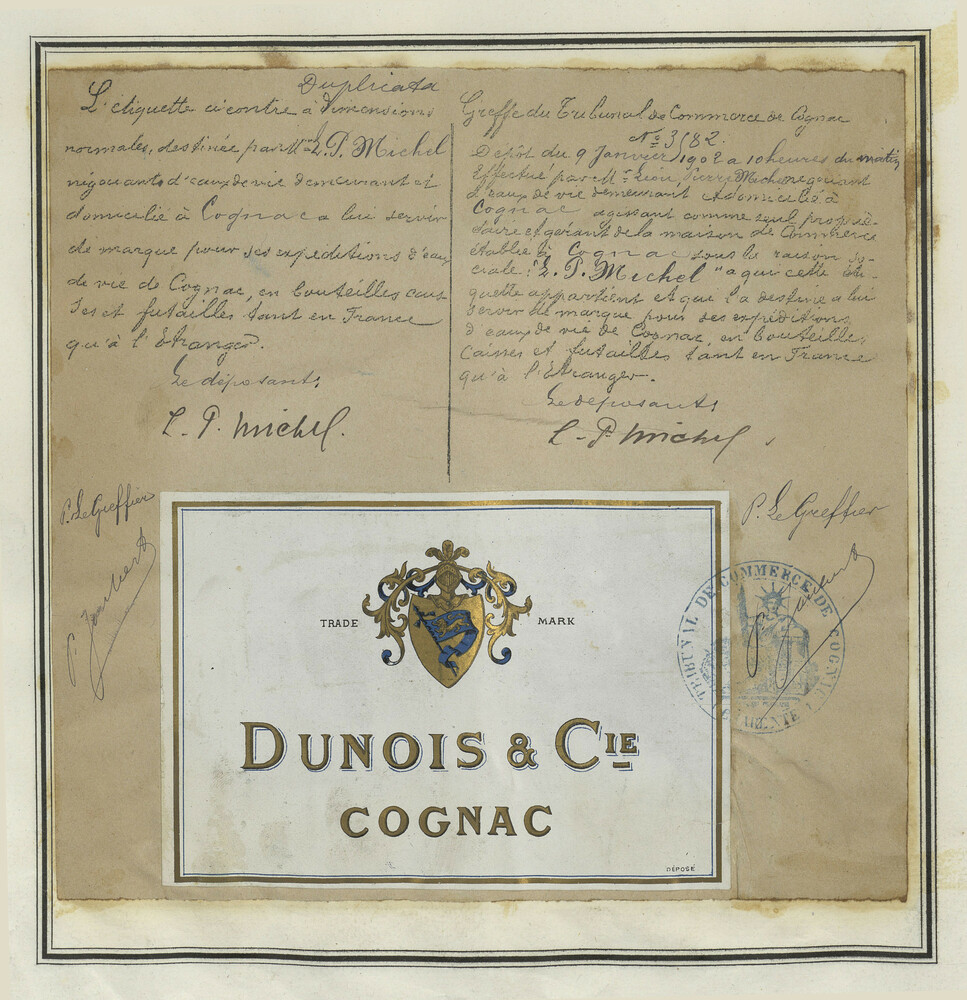 Duplicata
L'étiquette ci contre à dimensions
normales, destinée par Mr L. P. Michel
négociants d'eaux de vie demeurant et
domicilié à Cognac a lui servir
de marque pour ses expéditions d'eaux
de vie de Cognac, en bouteilles cais
ses et futailles tant en France
qu'à l'Etranger.
Le déposant,
L. P. Michel.
P. Le Greffier
P. Joubert
Greffe du Tribunal de Commerce de Cognac
No 3182.
Dépôt du 9 Janvier 1902 a 10 heures du matin
Effectué par Mr Léon, Pierre Michel négociant
d'eaux de vie demeurant et domicilié à
Cognac agissant comme seul proprié-
taire et gérant de la maison de Commerce
établie à Cognac sous la raison so-
ciale: "L. P. Michel" a qui cette éti-
quette appartient et qui l'a destine a lui
servir de marque pour ses expéditions
d'eaux de vie de Cognac, en bouteilles,
caisses et futailles tant en France
qu'à l'Etranger.
Le déposant,
L. P. Michel
P. Le Greffier
TRIBUNAL DE COMMERCE DE COGNAC
CHARENTE
TRADE MARK
DUNOIS & CIE
COGNAC
DÉPOSÉ